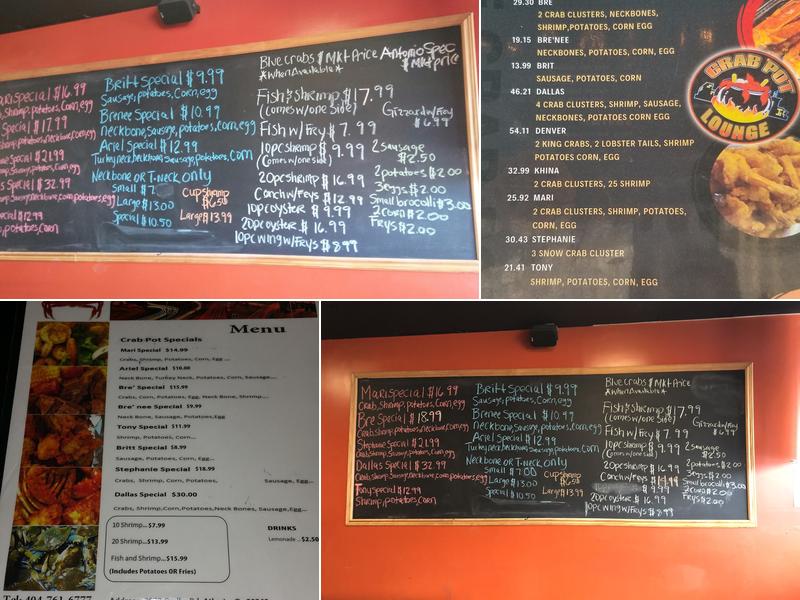 ari special $16.99
shrimp, potatoes, corn, egg
special $17.99
special $21.99
special $32.99
special $12.99
potatoes, corn
Britt special $9.99
Sausage, potatoes, corn, egg
Brenee special $10.99
Neckbone, sausage, potatoes, corn, egg
Ariel special $12.99
Turkey neck, neckbone, sausage, potatoes, corn
Neckbone OR T-neck only
Small $7
Large $13.00
Special $10.50
Cup shrimp
$6.50
Large $13.99
Blue crabs $ Mkt Price
*When Available*
Fish & Shrimp $17.99
(comes w/one side)
Fish w/Fry $7.99
10pc shrimp $9.99
(comes w/one side)
20pc shrimp $16.99
Conch w/Frys $12.99
10pc oyster $9.99
20pc oyster $16.99
10pc wing w/Frys $8.99
Antonio Spec
$ Mkt price
Gizzard w/Fry
$6.99
2 sausage
$2.50
2 potatoes $2.00
3 eggs $2.00
Small brocolli $3.00
2 corn $2.00
Frys $2.00
29.30 BRE
2 CRAB CLUSTERS, NECKBONES,
SHRIMP,POTATOES, CORN EGG
19.15 BRE'NEE
NECKBONES, POTATOES, CORN, EGG
13.99 BRIT
SAUSAGE, POTATOES, CORN
46.21 DALLAS
4 CRAB CLUSTERS, SHRIMP, SAUSAGE,
NECKBONES, POTATOES CORN EGG
54.11 DENVER
2 KING CRABS, 2 LOBSTER TAILS, SHRIMP
POTATOES CORN, EGG
32.99 KHINA
2 CRAB CLUSTERS, 25 SHRIMP
25.92 MARI
2 CRAB CLUSTERS, SHRIMP, POTATOES,
CORN, EGG
30.43 STEPHANIE
3 SNOW CRAB CLUSTER
21.41 TONY
SHRIMP, POTATOES, CORN, EGG
CRAB POT
LOUNGE
Menu
Crab Pot Specials
Mari Special $14.99
Crabs, Shrimp, Potatoes, Corn, Egg ...
Ariel Special $10.00
Neck Bone, Turkey Neck, Potatoes, Corn, Sausage....
Bre' Special $15.99
Crabs, Corn, Potatoes, Egg, Neck Bone, Shrimp...
Bre' nee Special $9.99
Neck Bone, Sausage, Potatoes,Egg
Tony Special $11.99
Shrimp, Potatoes, Corn...
Britt Special $8.99
Sausage, Potatoes, Corn, Egg...
Stephanie Special $18.99
Crabs, Shrimp, Corn, Potatoes, Sausage, Egg...
Dallas Special $30.00
Crabs, Shrimp,Corn,Potatoes,Neck Bones, Sausage, Egg...
10 Shrimp...$7.99
20 Shrimp...$13.99
Fish and Shrimp...$15.99
(Includes Potatoes OR Fries)
DRINKS
Lemonade ..$2.50
Tel: 404-761-6777
Mari special $16.99
Crab, shrimp, potatoes, corn, egg
Bre special $18.99
Crab, shrimp, potatoes, neckbone, corn, egg
Stephanie special $21.99
Crab, shrimp, sausage, potatoes, corn, egg
Dallas special $32.99
Crab, shrimp, sausage, neckbone, corn, potatoes, egg
Tony special $12.99
Shrimp, potatoes, corn
Britt special $9.99
Sausage, potatoes, corn, egg
Brenee special $10.99
Neckbone, sausage, potatoes, corn, egg
Ariel special $12.99
Turkey neck, neckbone, sausage, potatoes, corn
Neckbone OR T-neck only
Small $7.00
Large $13.00
Special $10.50
Cup shrimp
$6.50
Large $13.99
Blue crabs $ Mkt Price
*When Available*
Fish & Shrimp $17.99
(comes w/one side)
Fish w/Fry $7.99
10pc shrimp $9.99
(comes w/one side)
20pc shrimp $16.99
Conch w/Frys
$9.99
20pc oyster $16.99
10pc wing w/Frys $8.99
Gizzard w/Fry
$6.99
2 sausage
$2.50
2 potatoes $2.00
3 eggs $2.00
Small brocolli $3.00
2 corn $2.00
Frys $2.00